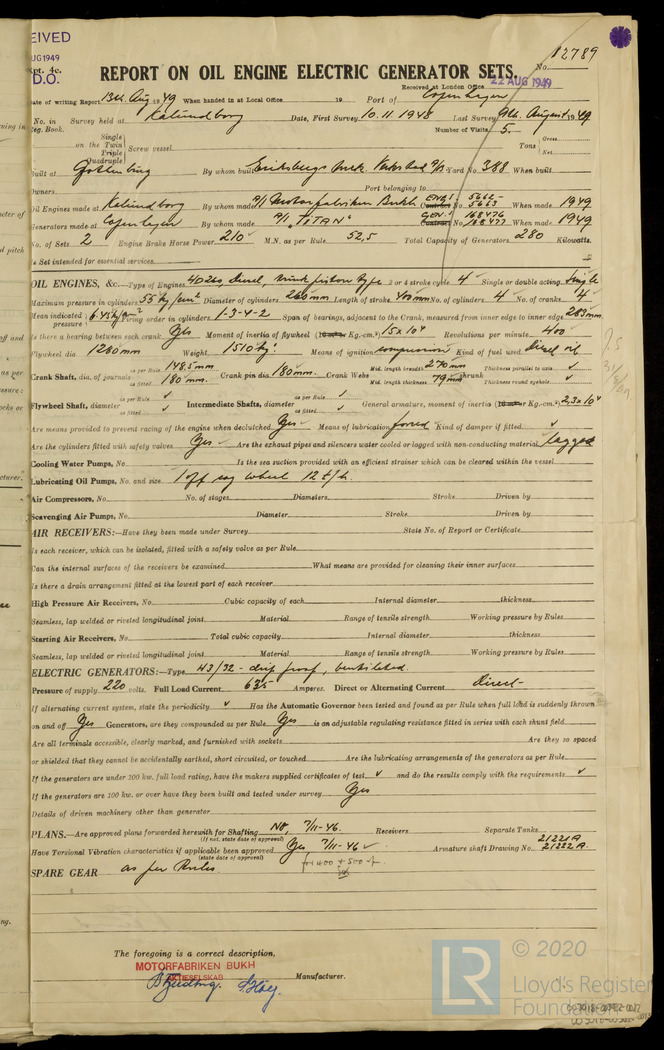 EIVED
UG1949
D.O.
Rpt. 4c.
No. 12789
REPORT ON OIL ENGINE ELECTRIC GENERATOR SETS.
Received at London Office 22 AUG 1949
Date of writing Report 13th Aug 1949 When handed in at Local Office 19 Port of Copenhagen
No. in Survey held at Kalundborg Date, First Survey 10.11.1948 Last Survey 9th August 1949
Reg. Book. Number of Visits 5.
Single
on the Twin Screw vessel Tons Gross
Triple Net
Quadruple
Built at Gothenburg By whom built Eriksbergs Mek. Verkstad A/B Yard No. 388 When built
Owners Port belonging to
Oil Engines made at Kalundborg By whom made A/S Motorfabriken Bukh ENG: Contract No. 5662- 5663 When made 1949
Generators made at Copenhagen By whom made A/S "TITAN" GEN: Contract No. 168476 168477 When made 1949
No. of Sets 2 Engine Brake Horse Power 210 M.N. as per Rule 52,5 Total Capacity of Generators 280 Kilowatts.
Is Set intended for essential services
OIL ENGINES, &c.—Type of Engines Diesel, trunk piston type 2 or 4 stroke cycle 4 Single or double acting Single
Maximum pressure in cylinders 55 kg/cm² Diameter of cylinders 260 mm Length of stroke 400 mm No. of cylinders 4 No. of cranks 4
Mean indicated pressure 6.45 kg/cm² Firing order in cylinders 1-3-4-2 Span of bearings, adjacent to the Crank, measured from inner edge to inner edge 283 mm
Is there a bearing between each crank Yes Moment of inertia of flywheel ( Kg.-cm.²) 15 x 10⁴ Revolutions per minute 400
Flywheel dia. 1280 mm Weight 1510 kg: Means of ignition compression Kind of fuel used Diesel oil
Crank Shaft, dia. of journals as per Rule 148.5 mm as fitted 180 mm. Crank pin dia. 180 mm. Crank Webs Mid. length breadth 270 mm Mid. length thickness 79 mm shrunk Thickness parallel to axis ✓ Thickness round eyehole ✓
Flywheel Shaft, diameter as per Rule ✓ as fitted ✓ Intermediate Shafts, diameter as per Rule ✓ as fitted ✓ General armature, moment of inertia ( Kg.-cm.²) 2,3 x 10⁴
Are means provided to prevent racing of the engine when declutched Yes Means of lubrication forced Kind of damper if fitted ✓
Are the cylinders fitted with safety valves Yes Are the exhaust pipes and silencers water cooled or lagged with non-conducting material lagged
Cooling Water Pumps, No. Is the sea suction provided with an efficient strainer which can be cleared within the vessel
Lubricating Oil Pumps, No. and size 1 off cog wheel 12 t/h.
Air Compressors, No. No. of stages Diameters Stroke Driven by
Scavenging Air Pumps, No. Diameter Stroke Driven by
AIR RECEIVERS:—Have they been made under Survey State No. of Report or Certificate
Is each receiver, which can be isolated, fitted with a safety valve as per Rule
Can the internal surfaces of the receivers be examined What means are provided for cleaning their inner surfaces
Is there a drain arrangement fitted at the lowest part of each receiver
High Pressure Air Receivers, No. Cubic capacity of each Internal diameter thickness
Seamless, lap welded or riveted longitudinal joint Material Range of tensile strength Working pressure by Rules
Starting Air Receivers, No. Total cubic capacity Internal diameter thickness
Seamless, lap welded or riveted longitudinal joint Material Range of tensile strength Working pressure by Rules
ELECTRIC GENERATORS:—Type 43/32 - drip proof, ventilated.
Pressure of supply 220 volts. Full Load Current 635 Amperes. Direct or Alternating Current Direct-
If alternating current system, state the periodicity ✓ Has the Automatic Governor been tested and found as per Rule when full load is suddenly thrown
on and off Yes Generators, are they compounded as per Rule Yes is an adjustable regulating resistance fitted in series with each shunt field
Are all terminals accessible, clearly marked, and furnished with sockets Are they so spaced
or shielded that they cannot be accidentally earthed, short circuited, or touched Are the lubricating arrangements of the generators as per Rule
If the generators are under 100 kw. full load rating, have the makers supplied certificates of test ✓ and do the results comply with the requirements ✓
If the generators are 100 kw. or over have they been built and tested under survey Yes
Details of driven machinery other than generator
PLANS.—Are approved plans forwarded herewith for Shafting No, 7/11-46. Receivers Separate Tanks
(If not, state date of approval)
Have Torsional Vibration characteristics if applicable been approved Yes 7/11-46 ✓ Armature shaft Drawing No. 21221A 21222A
(state date of approval)
SPARE GEAR as per Rules
The foregoing is a correct description,
MOTORFABRIKEN BUKH
AKTIESELSKAB
Manufacturer.
LR
© 2020
Lloyd's Register
Foundation